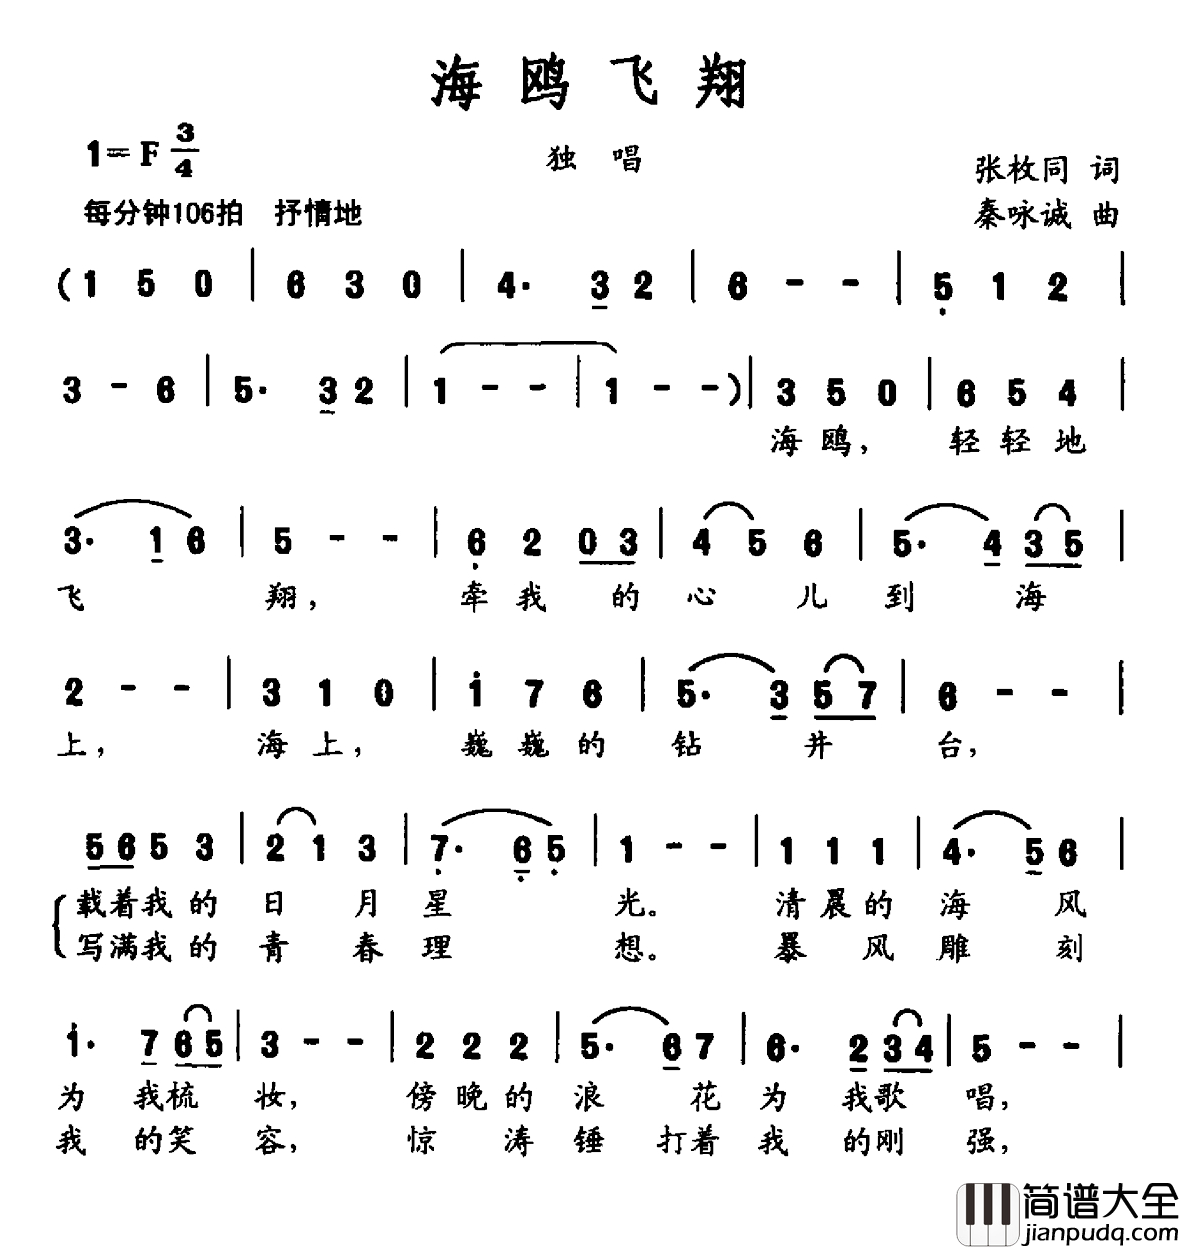 海鸥飞翔
1=F 3/4
独唱
张枚同 词
每分钟106拍 抒情地
秦咏诚 曲
(1 5 0 | 6 3 0 | 4· 3 2 | 6 - - | 5 1 2 |
3 - 6 | 5· 3 2 | 1 - - | 1 - -) | 3 5 0 | 6 5 4 |
海鸥，轻轻地
3· 1 6 | 5 - - | 6 2 0 3 | 4 5 6 | 5· 4 3 5 |
飞翔，牵我的心儿到海
2 - - | 3 1 0 | 1 7 6 | 5· 3 5 7 | 6 - - |
上，海上，巍巍的钻井台，
5 6 5 3 | 2 1 3 | 7· 6 5 | 1 - - | 1 1 1 | 4· 5 6 |
载着我的日月星光。清晨的海风
写满我的青春理想。暴风雕刻
1· 7 6 5 | 3 - - | 2 2 2 | 5· 6 7 | 6· 2 3 4 | 5 - - |
为我梳妆，傍晚的浪花为我歌唱，
我的笑容，惊涛锤打着我的刚强，
简谱大全
jianpudq.com